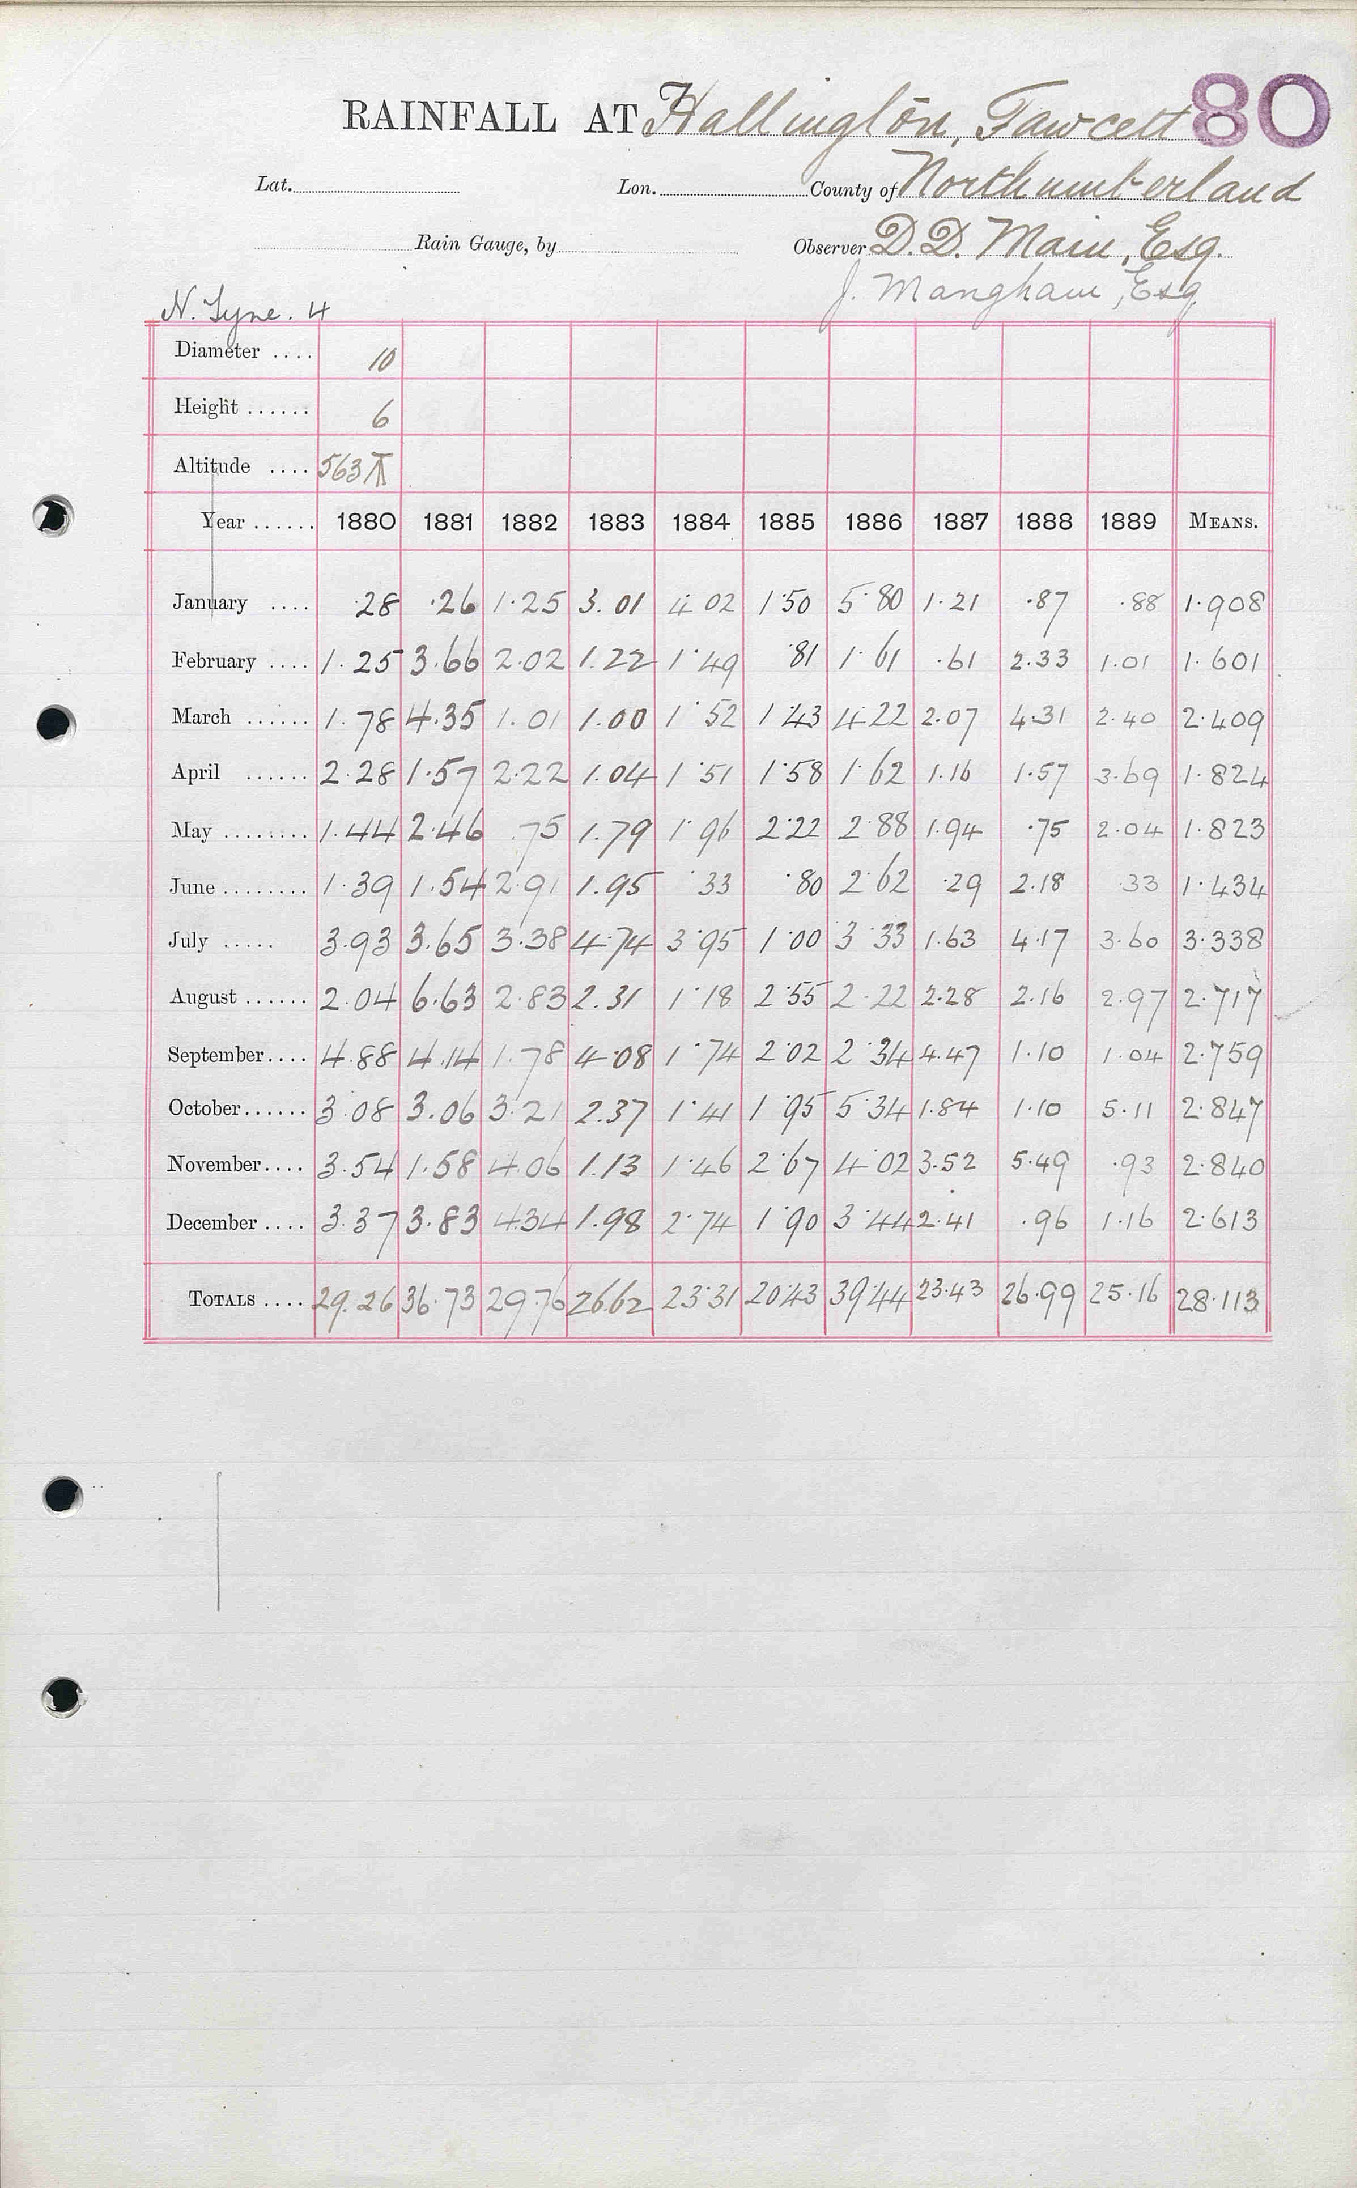 RAINFALL AT Hallington, Fawcett 80
Lat. Lon. County of Northumberland
Rain Gauge, by Observer D.D. Main, Esq.
J. Mangham, Esq
N. Tyne. 4
Diameter .... 10
Height ...... 6
Altitude .... 563
Year ...... 1880 1881 1882 1883 1884 1885 1886 1887 1888 1889 MEANS.
January .... .28 .26 1.25 3.01 4.02 1.50 5.80 1.21 .87 .88 1.908
February .... 1.25 3.66 2.02 1.22 1.49 .81 1.61 .61 2.33 1.01 1.601
March ...... 1.78 4.35 1.01 1.00 1.52 1.43 4.22 2.07 4.31 2.40 2.409
April ...... 2.28 1.57 2.22 1.04 1.51 1.58 1.62 1.16 1.57 3.69 1.824
May ........ 1.44 2.46 .75 1.79 1.96 2.22 2.88 1.94 .75 2.04 1.823
June ........ 1.39 1.54 2.91 1.95 .33 .80 2.62 .29 2.18 .33 1.434
July ..... 3.93 3.65 3.38 4.74 3.95 1.00 3.33 1.63 4.17 3.60 3.338
August ...... 2.04 6.63 2.83 2.31 1.18 2.55 2.22 2.28 2.16 2.97 2.717
September.... 4.88 4.14 1.78 4.08 1.74 2.02 2.34 4.47 1.10 1.04 2.759
October...... 3.08 3.06 3.21 2.37 1.41 1.95 5.34 1.84 1.10 5.11 2.847
November.... 3.54 1.58 4.06 1.13 1.46 2.67 4.02 3.52 5.49 .93 2.840
December .... 3.37 3.83 4.34 1.98 2.74 1.90 3.44 2.41 .96 1.16 2.613
TOTALS .... 29.26 36.73 29.76 26.62 23.31 20.43 39.44 23.43 26.99 25.16 28.113